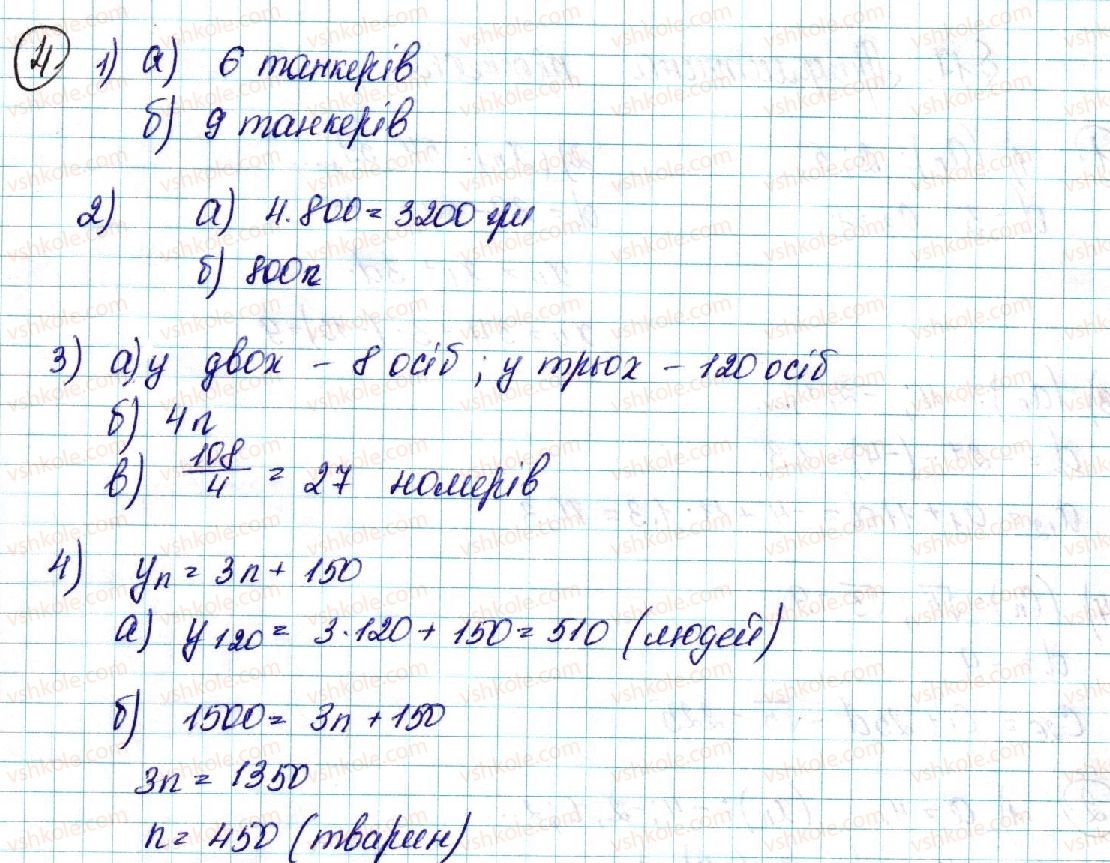 4 1) а) 6 танкерів
б) 9 танкерів
2) а) 4·800 = 3200 грн
б) 800n
3) а) у двох – 8 осіб; у трьох – 120 осіб
б) 4n
в) 108/4 = 27 номерів
4) yn = 3n + 150
а) y120 = 3·120 + 150 = 510 (людей)
б) 1500 = 3n + 150
3n = 1350
n = 450 (тварин)